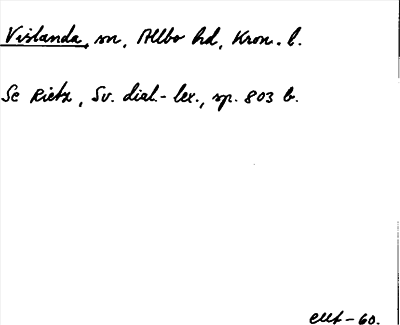 Vislanda, sn, Allbo hd, Kron. l.
Se Rietz, Sv. dial.-lex., sp. 803 b.
EUf-60.